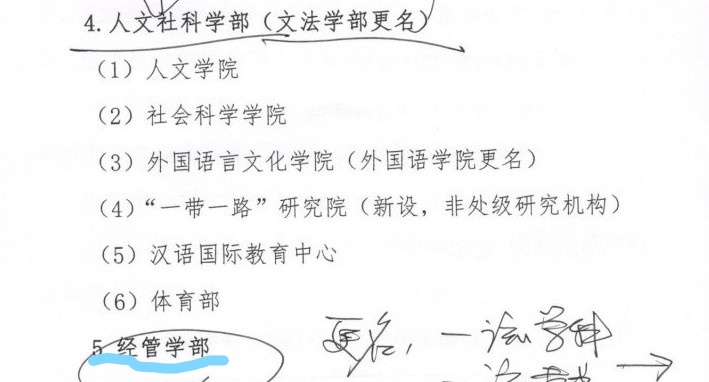 4.人文社科学部（文法学部更名）
（1）人文学院
（2）社会科学学院
（3）外国语言文化学院（外国语学院更名）
（4）“一带一路”研究院（新设，非处级研究机构）
（5）汉语国际教育中心
（6）体育部
5.经管学部
更名，一法学科